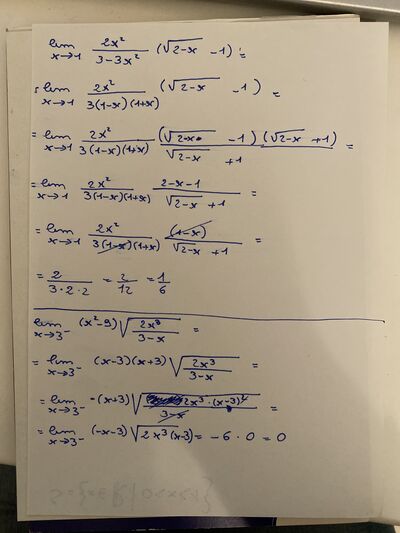 lim x→1 2x²/(3-3x²) (√(2-x) -1) =
= lim x→1 2x²/(3(1-x)(1+x)) (√(2-x) -1) =
= lim x→1 2x²/(3(1-x)(1+x)) (√(2-x) -1)(√(2-x) +1)/(√(2-x) +1) =
= lim x→1 2x²/(3(1-x)(1+x)) (2-x-1)/(√(2-x) +1) =
= lim x→1 2x²/(3(1-x)(1+x)) (1-x)/(√(2-x) +1) =
= 2/(3·2·2) = 2/12 = 1/6
lim x→3⁻ (x²-9) √(2x³/(3-x)) =
= lim x→3⁻ (x-3)(x+3) √(2x³/(3-x)) =
= lim x→3⁻ -(x+3) √(2x³·(x-3)²/(3-x)) =
= lim x→3⁻ (-x-3) √(2x³(x-3)) = -6 · 0 = 0